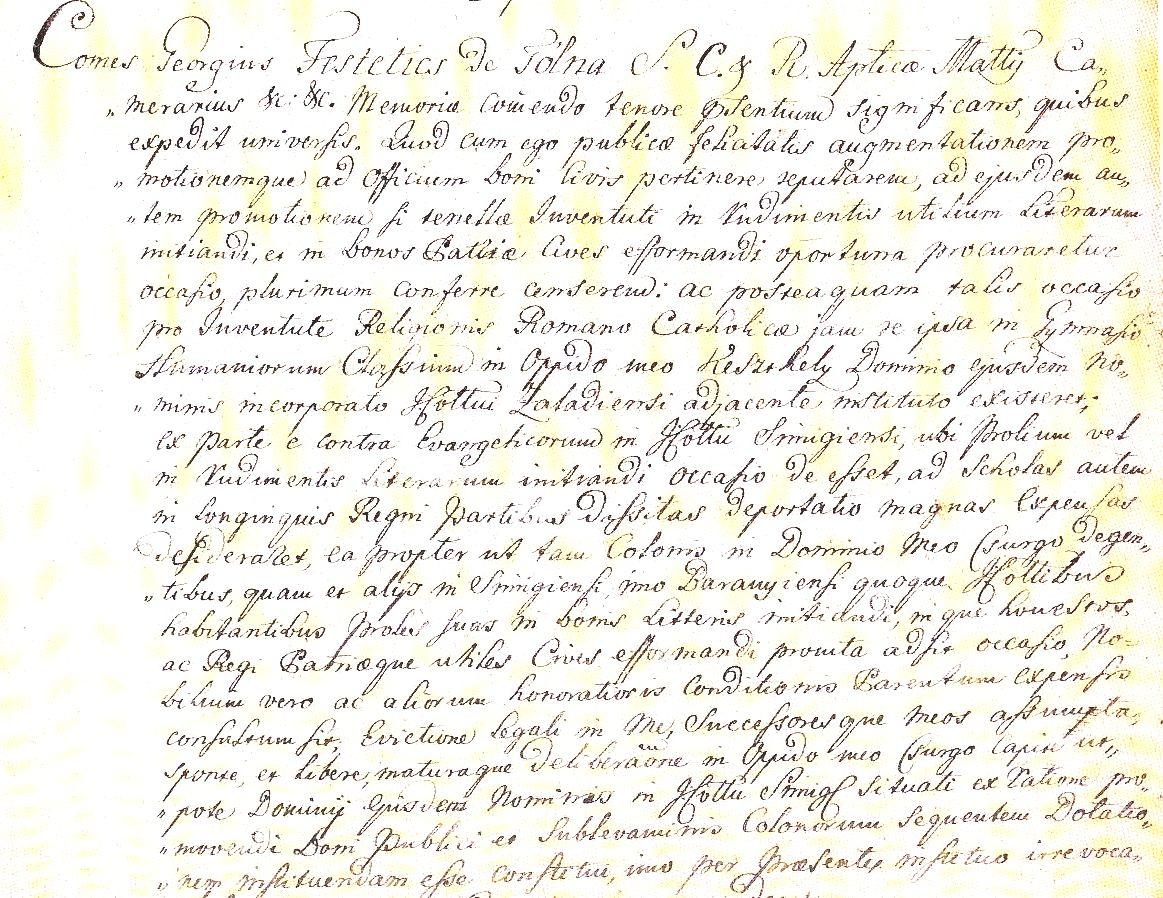 Comes Georgius Festetics De Tólna S. C. & R. Aptlicæ Mattis Ca„
„merarius &c: &c. Memoriæ comendo tenore psentium significans, quibus
expedit universis. Quod cum ego publicæ felicitatis augmentationem pro„
„motionemque ad Officium boni Civis pertinere reputarem, ad ejusdem au„
„tem promotionem si tenellæ Juventuti in Rudimentis utilium Literarum
initiandi, et in bonos Patriæ Cives efformandi oportuna procuraretur
occasio, plurimum conferre censerem: ac posteaquam talis occasio
pro Juventute Religionis Romano Catholicæ jam re ipsa in Gymnasio
Humaniorum Classium in Oppido meo Keszthely Dominio ejusdem No„
„minis incorporato Ittottui Zaladiensi adjacente instituto existeret;
ex parte e contra Evangelicorum in Ittottu Simigiensi, ubi Prolium vel
in Rudimentis Literarum initiandi occasio de esset, ad Scholas autem
in longinquis Regni Partibus dissitas deportatio magnas Expensas
desideraret, ea propter ut tam Colonis in Dominio Meo Csurgo degen„
„tibus, quam et alijs in Simigiensi, imo Baranyiensi quoque Ittottibus
habitantibus Proles suas in bonis Litteris initiandi, in que honestos,
ac Regi Patriæque utiles Cives efformandi promta adsit occasio, No„
bilium vero ac aliorum honoratioris Conditionis Parentum Expensis
consultum sit, Evictione legali in Me, Successoresque meos assumpta,
sponte, et libere, maturaque deliberaõne in Oppido meo Csurgo Capite ut„
„pote Dominij Ejusdem Nominis in Ittottu Simigs situati ex Ratione pro„
„movendi Boni Publici et Sublevaminis Colonorum Sequentem Dotatio„
„nem instituendam esse constitui, imo per Præsentes instituo irrevoca„